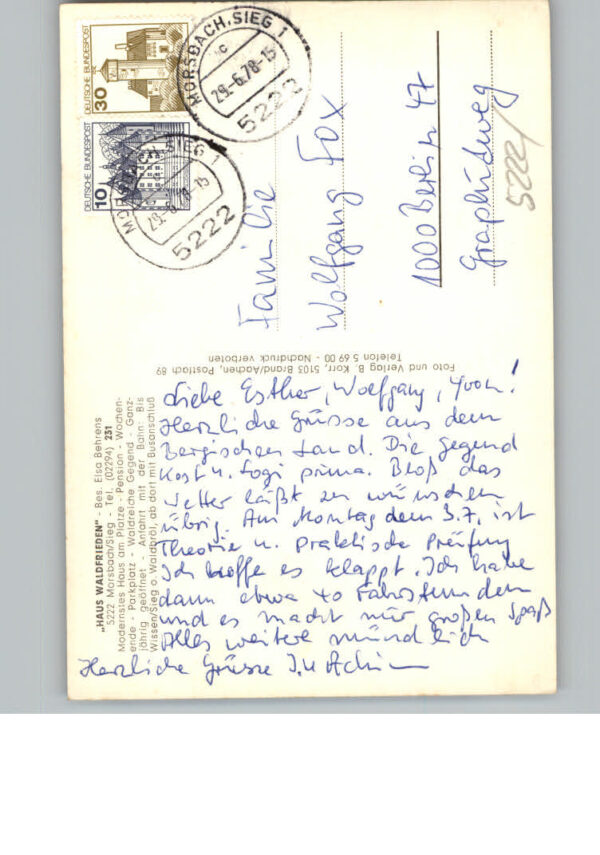 „HAUS WALDFRIEDEN" - Bes. Elsa Behrens
5222 Morsbach/Sieg - Tel. (02294) 231
Modernstes Haus am Platze - Pension - Wochen-
ende - Parkplatz - Waldreiche Gegend - Ganz-
jährig geöffnet - Anfahrt mit der Bahn: Bis
Wissen/Sieg o. Waldbröl, ab dort mit Busanschluß
Foto und Verlag B. Korr, 5103 Brand/Aachen, Postfach 89
Telefon 5 69 00 - Nachdruck verboten
Liebe Esther, Wolfgang, Yvon!
Herzliche Grüsse aus dem
Bergischen Land. Die Gegend
Kost u. Logi prima. Bloß das
Wetter läßt zu wünschen
übrig. Am Montag dem 3.7. ist
Theorie u. Praktische Prüfung
Ich hoffe es klappt. Ich habe
dann etwa 40 Fahrstunden
und es macht mir großen Spaß
Alles weitere mündlich
Herzliche Grüsse I. u Achim
DEUTSCHE BUNDESPOST
30
DEUTSCHE BUNDESPOST
10
MORSBACH, SIEG 1
c
29.-6.78-15
5222
MORSBACH, SIEG 1
29.-6.78-15
5222
Familie
Wolfgang Fox
1000 Berlin 47
Graphitweg
5222/